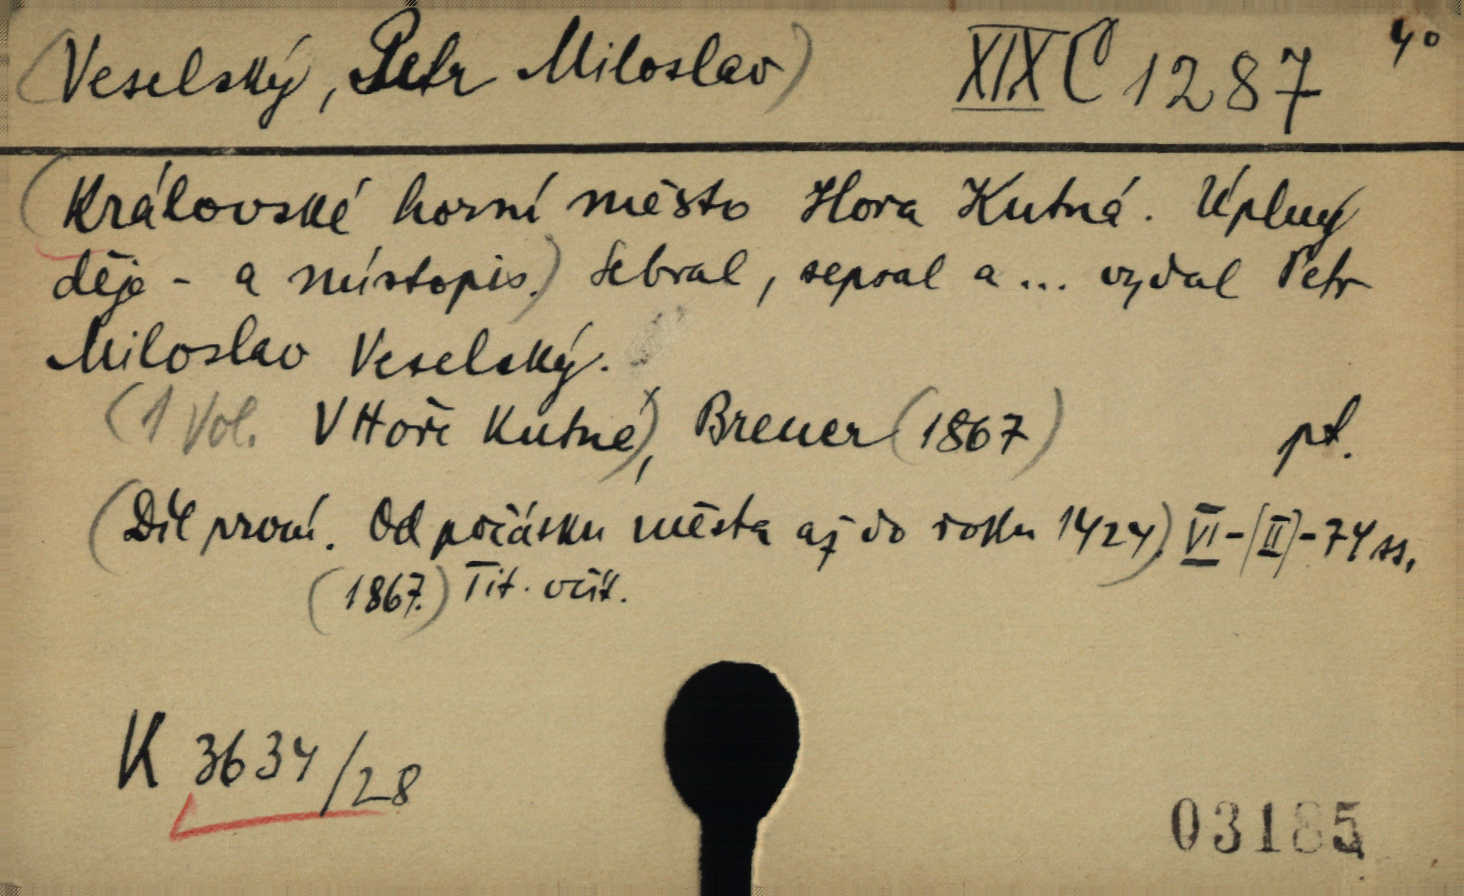 (Veselský, Petr Miloslav) XIX C 1287 4°
(Královské horní město Hora Kutná. Úplný
děje - a místopis.) Sebral, sepsal a ... vydal Petr
Miloslav Veselský.
(1 Vol. V Hoře Kutné), Brener (1867) pt.
(Díl první. Od počátku města až do roku 1424). VI-[II]-74 ss.
(1867.) Tit. včít.
K 3634/28
03185